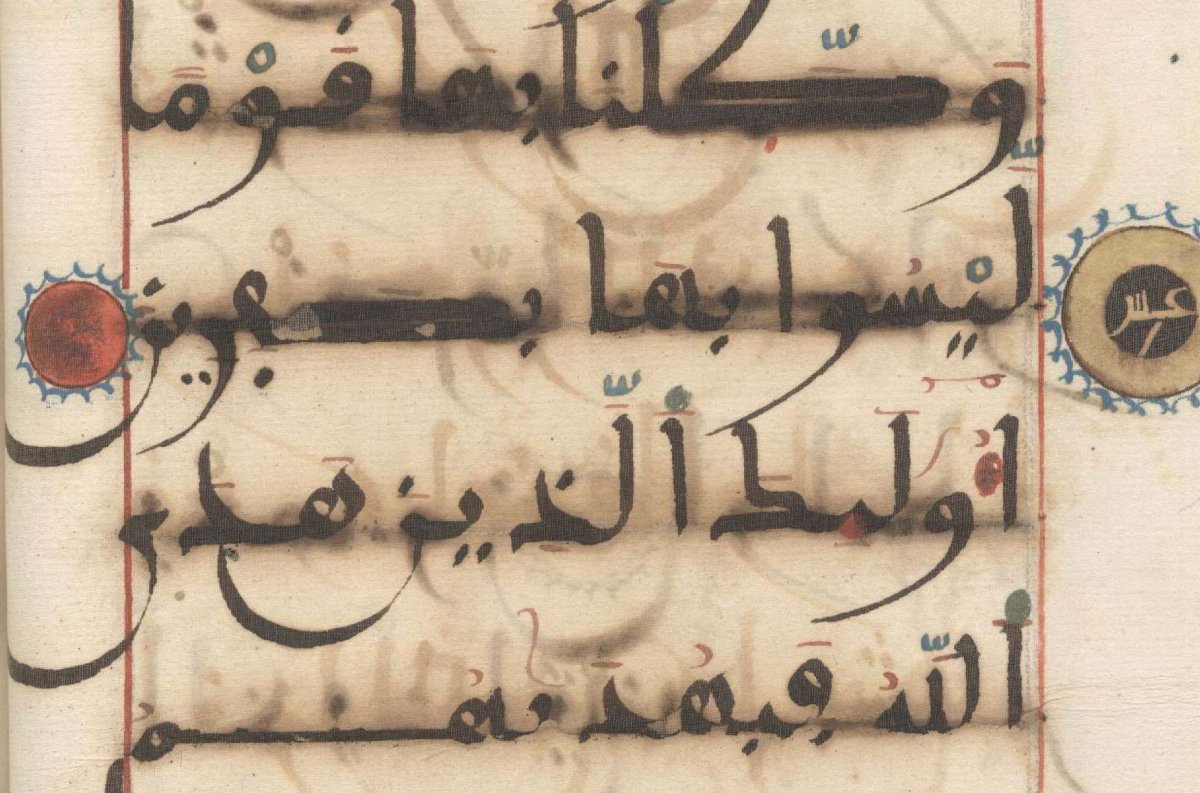 وَكَّلْنَا بِهَا قَوْمًا
لَّيْسُوا بِهَا بِكَفِرِينَ
عشر
أُوْلَئِكَ الَّذِينَ هَدَى
اللَّهُ فَبِهُدَيهُمُ